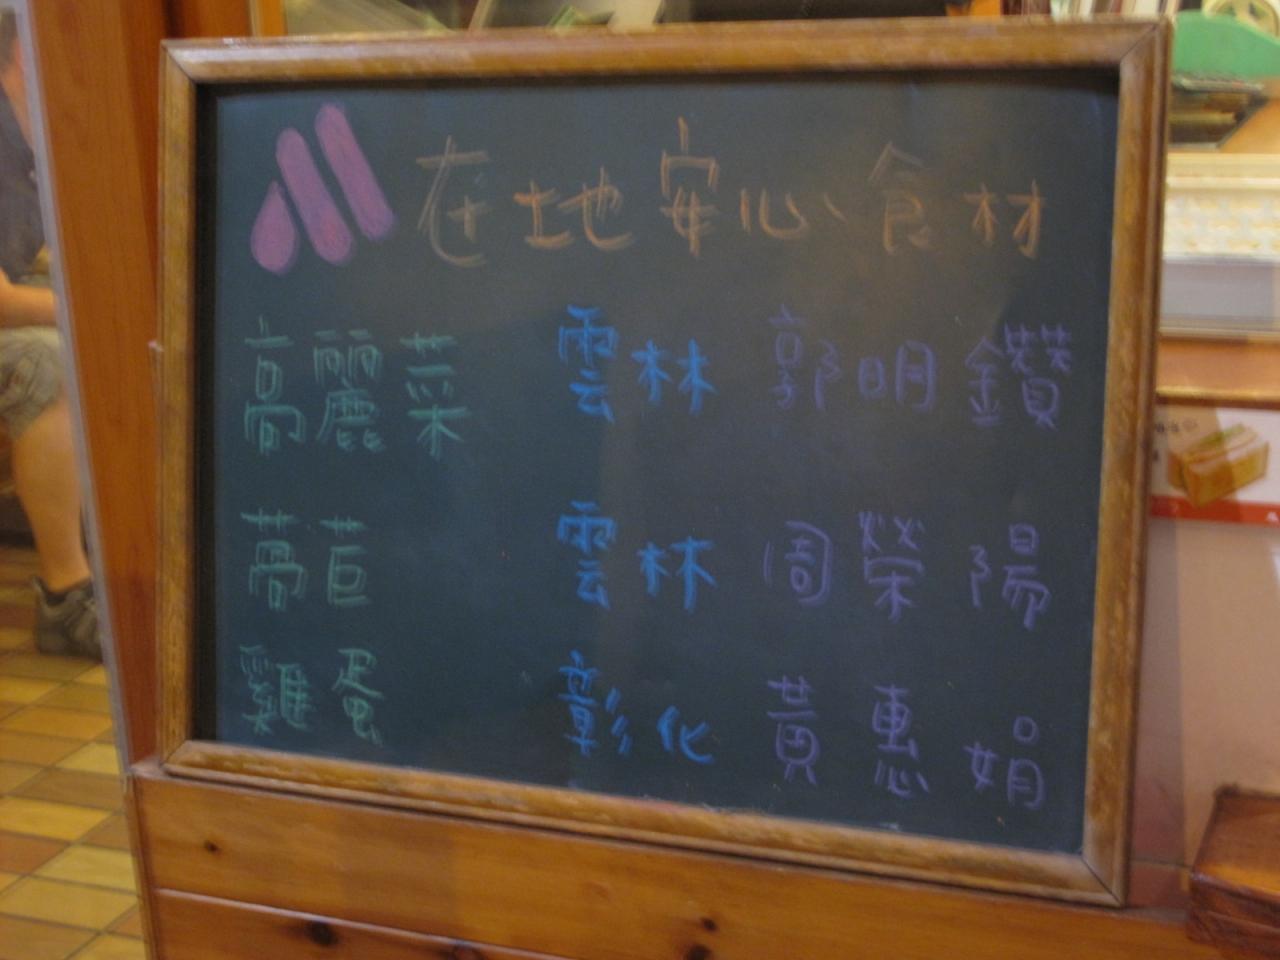 在地安心食材
高麗菜 雲林 郭明鑽
萵苣 雲林 周榮陽
雞蛋 彰化 黃惠娟